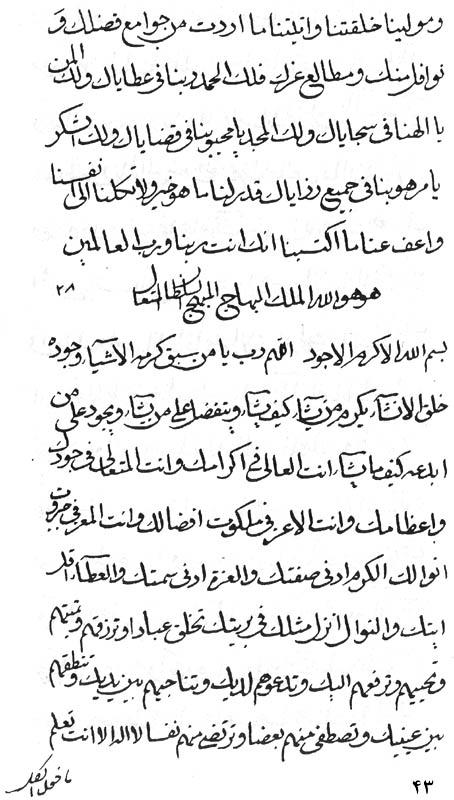 ومولينا خلقتنا وابليتنا ما اردت من جوامع فضلك و
نوافل منك ومطالع عزك فلك الحمد ربنا فى عطاياك ولك المن
يا الهنا فى سجاياك ولك المجد يا محبوبنا فى قضاياك ولك الشكر
يا مرهوبنا فى جميع رزاياك قدر لنا ما هو خير ولا تكلنا الى انفسنا
واعف عنا ما اكتسبنا انك انت ربنا ورب العالمين
هو هو الله الملك البهاج المبتهج السلطان المتعال ٢٨
بسم الله الاكرم الاجود اللهم رب يا من سبق كرمه الاشياء وجوده
خلق الانشاء يكرم من يشاء كيف يشاء ويتفضل على من يشاء ويجود على من
ابدعه كيف ما يشاء انت العالى فى اكرامك وانت المتعالى فى جودك
واعظامك وانت الاعز فى ملكوت افضالك وانت المعز فى جبروت
انوالك الكرم ادنى صفتك والعزة ادنى سمتك والعطاء اقل
ايتك والنوال انزل مثلك فى بريتك تخلق عبادا وترزقهم وتميتهم
وتحييهم وترفعهم اليك وتدعوهم لديك وتناجيهم بين يديك وتنطقهم
بين عينيك وتصطفى منهم بعضا وترتضى منهم نفسا لا اله الا انت تعلم
٤٣